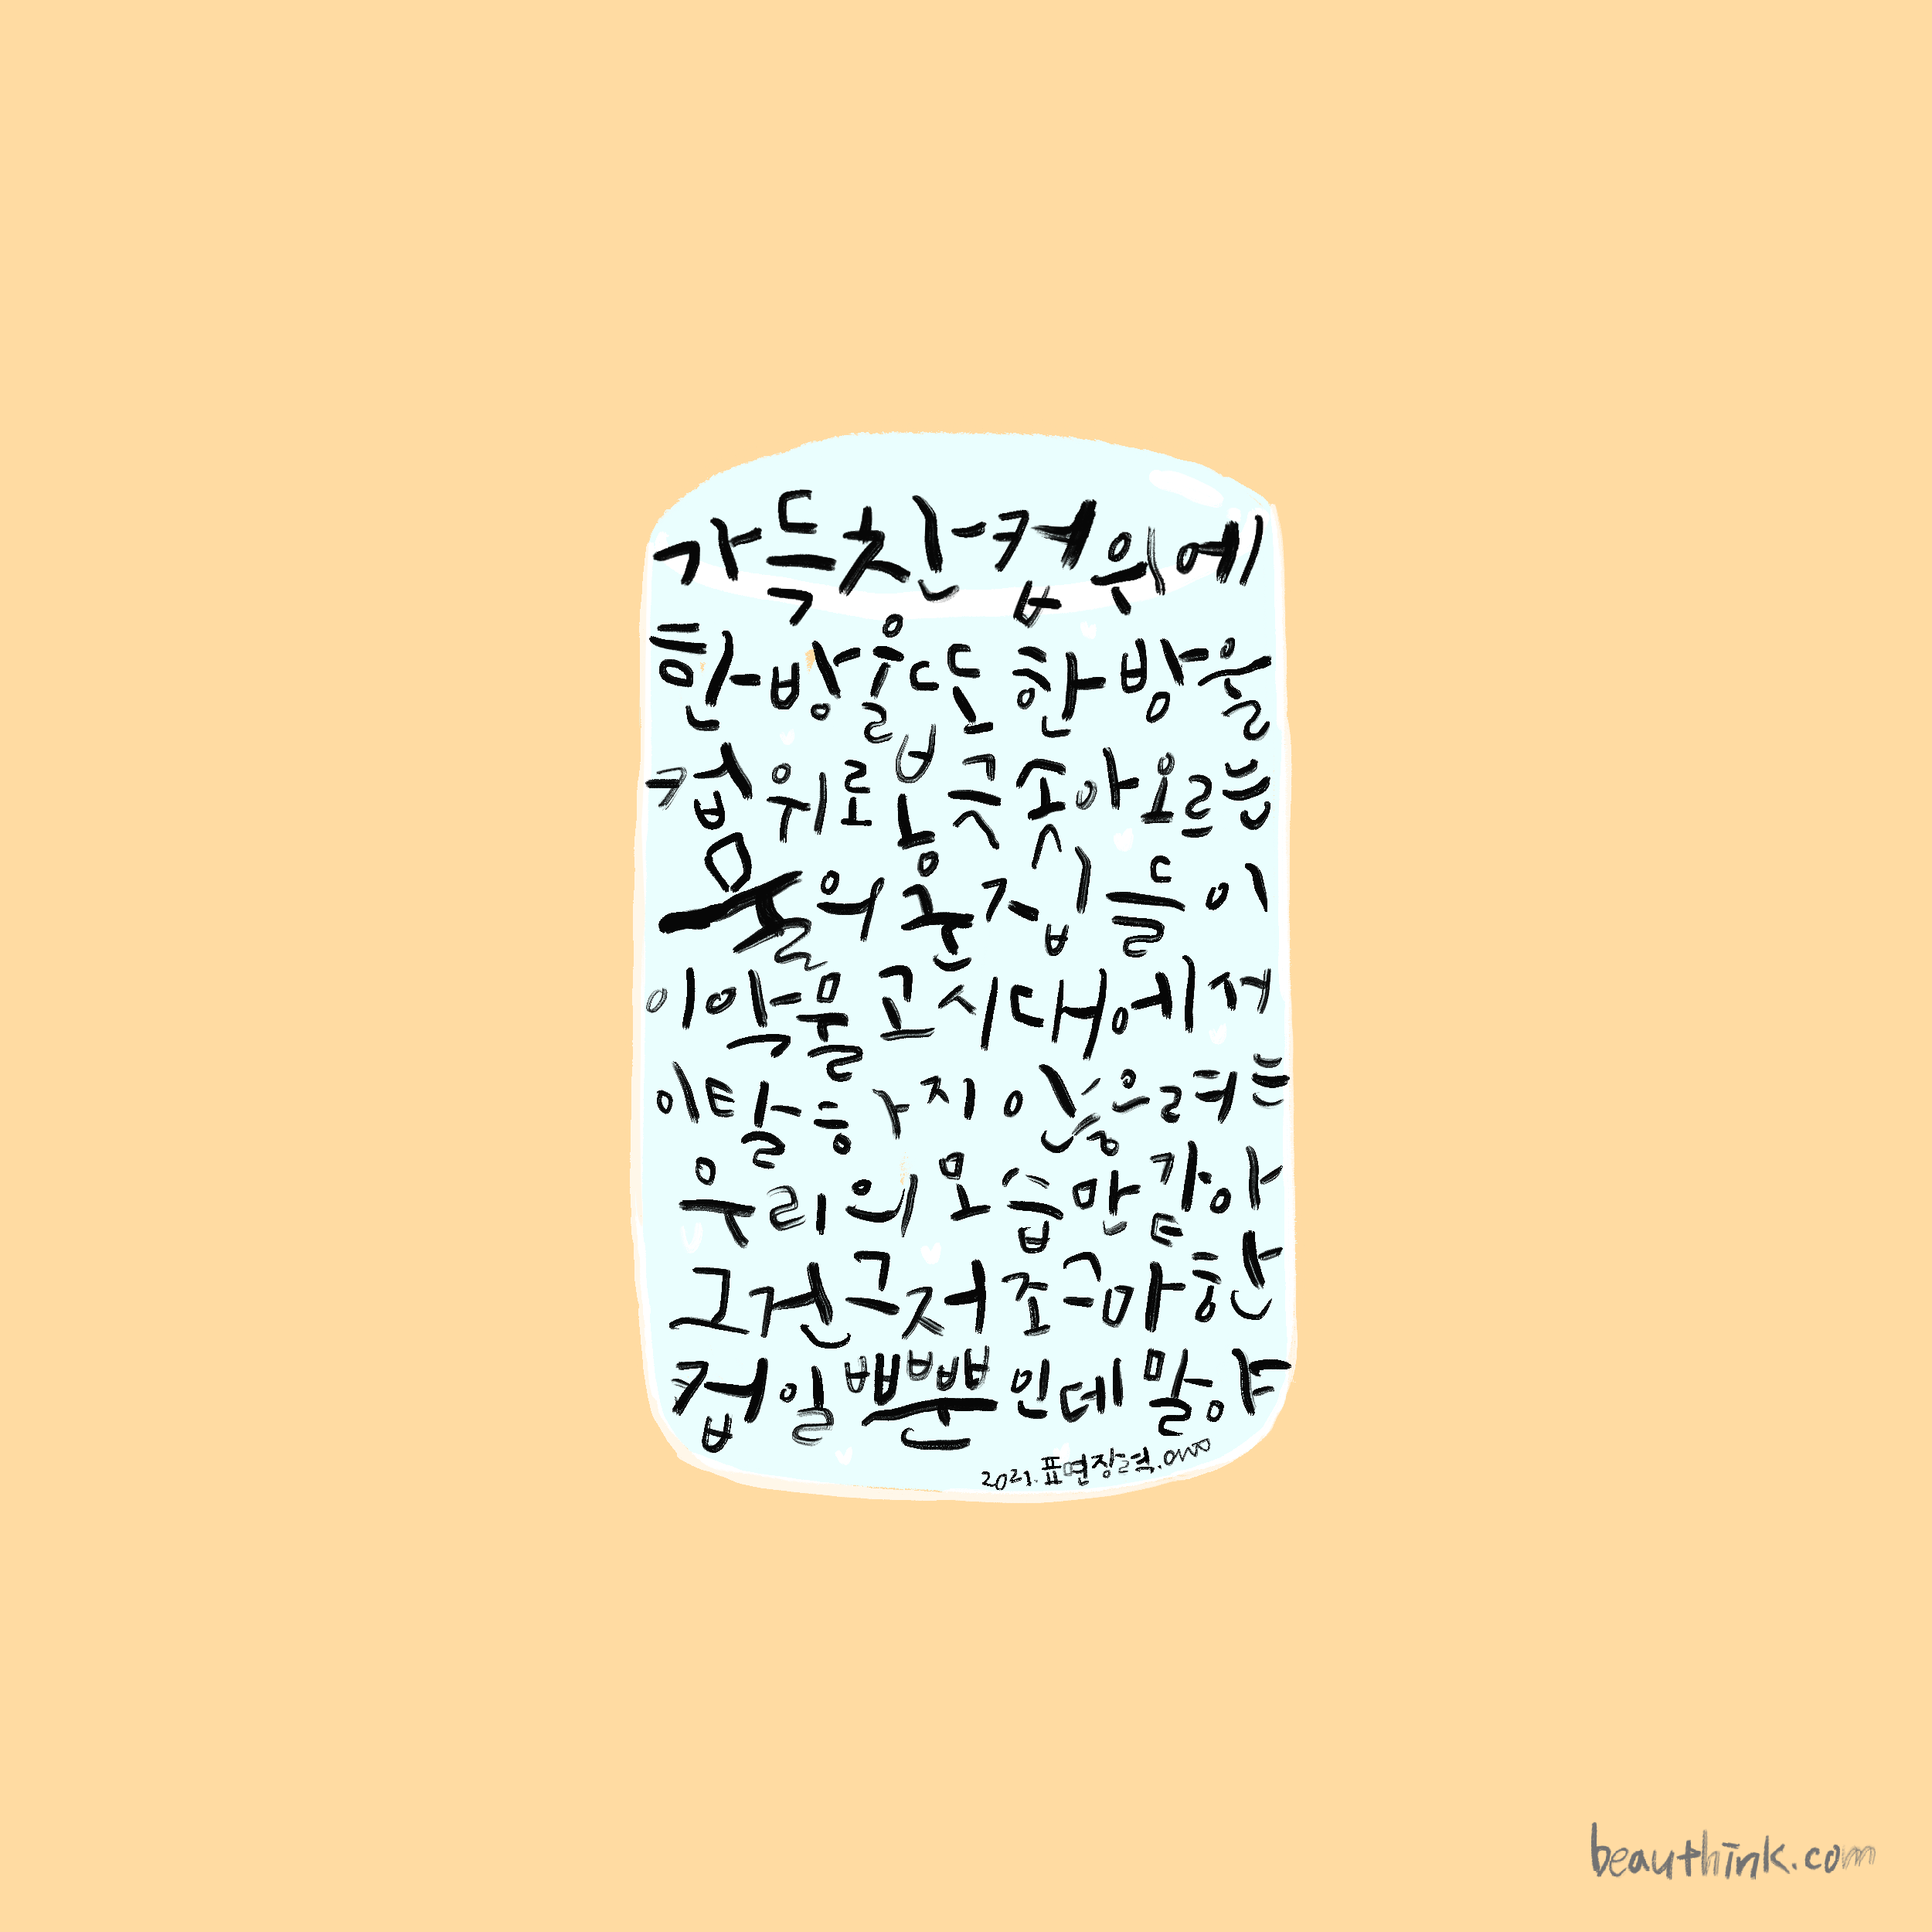 가득찬 컵 위에
한 방울 또 한 방울
컵 위로 봉긋 솟아오르는
물의 군집들이
이 악물고 시대에서
이탈하지 않으려는
우리의 모습만 같아
그건 그저 조그마한
컵일 뿐인데 말야
2021. 표면장력.
beauthink.com